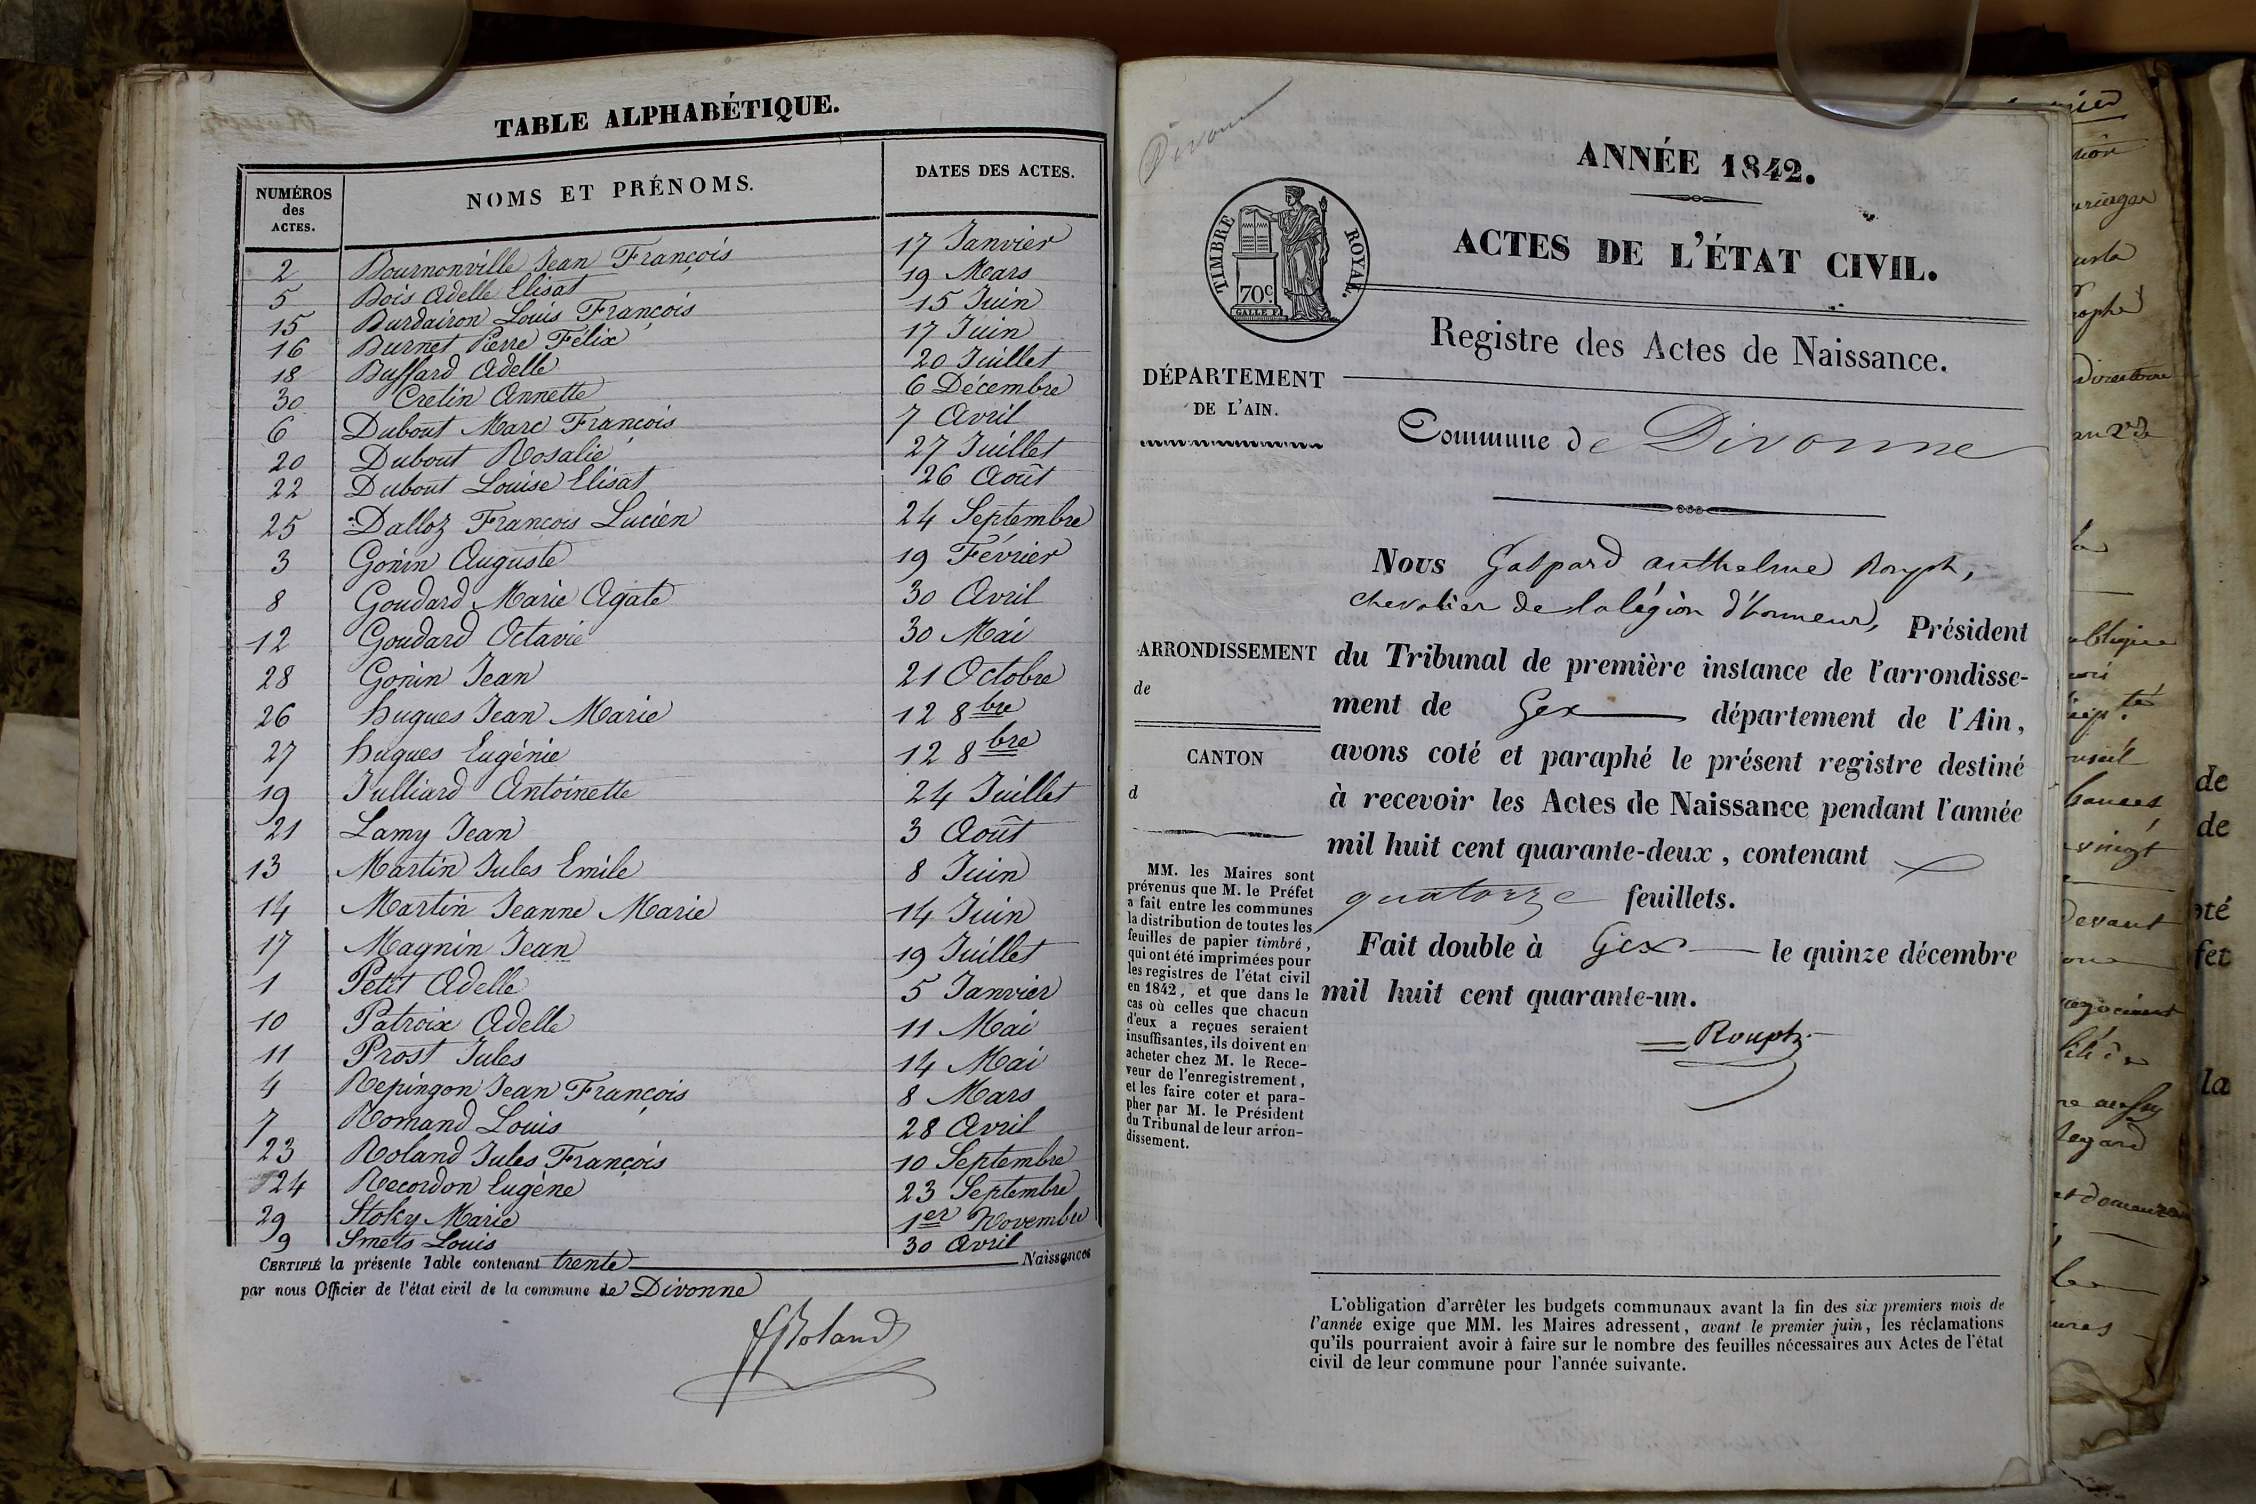 TABLE ALPHABÉTIQUE.
NUMÉROS des ACTES. NOMS ET PRÉNOMS. DATES DES ACTES.
2 Bournonville Jean François 17 Janvier
5 Bois Adelle Elisat 19 Mars
15 Burdairon Louis François 15 Juin
16 Burnet Pierre Félix 17 Juin
18 Buffard Adelle 20 Juillet
30 Cretin Annette 6 Décembre
6 Dubout Marc François 7 Avril
20 Dubout Rosalie 27 Juillet
22 Dubout Louise Elisat 26 Août
25 Dalloz François Lucien 24 Septembre
3 Gonin Auguste 19 Février
8 Goudard Marie Agate 30 Avril
12 Goudard Octavie 30 Mai
28 Gonin Jean 21 Octobre
26 hugues Jean Marie 12 8bre
27 hugues Eugénie 12 8bre
19 Julliard Antoinette 24 Juillet
21 Lamy Jean 3 Août
13 Martin Jules Emile 8 Juin
14 Martin Jeanne Marie 14 Juin
17 Magnin Jean 19 Juillet
1 Petit Adelle 5 Janvier
10 Patroix Adelle 11 Mai
11 Prost Jules 14 Mai
4 Repingon Jean François 8 Mars
7 Romand Louis 28 Avril
23 Roland Jules François 10 Septembre
24 Recordon Eugène 23 Septembre
29 Stoky Marie 1er Novembre
9 Smets Louis 30 Avril
CERTIFIÉ la présente Table contenant trente Naissances
par nous Officier de l'état civil de la commune de Divonne
Roland
Divonne
ANNÉE 1842.
TIMBRE ROYAL.
70c.
ACTES DE L'ÉTAT CIVIL.
Registre des Actes de Naissance.
DÉPARTEMENT
DE L'AIN.
Commune de Divonne
Nous Gaspard anthelme Rouph,
chevalier de la légion d'honneur, Président
ARRONDISSEMENT
de
du Tribunal de première instance de l'arrondisse-
ment de Gex département de l'Ain,
CANTON
d
avons coté et paraphé le présent registre destiné
à recevoir les Actes de Naissance pendant l'année
mil huit cent quarante-deux, contenant
quatorze feuillets.
Fait double à Gex le quinze décembre
mil huit cent quarante-un.
Rouph
MM. les Maires sont
prévenus que M. le Préfet
a fait entre les communes
la distribution de toutes les
feuilles de papier timbré,
qui ont été imprimées pour
les registres de l'état civil
en 1842, et que dans le
cas où celles que chacun
d'eux a reçues seraient
insuffisantes, ils doivent en
acheter chez M. le Rece-
veur de l'enregistrement,
et les faire coter et para-
pher par M. le Président
du Tribunal de leur arron-
dissement.
L'obligation d'arrêter les budgets communaux avant la fin des six premiers mois de
l'année exige que MM. les Maires adressent, avant le premier juin, les réclamations
qu'ils pourraient avoir à faire sur le nombre des feuilles nécessaires aux Actes de l'état
civil de leur commune pour l'année suivante.
de
de
fet
la